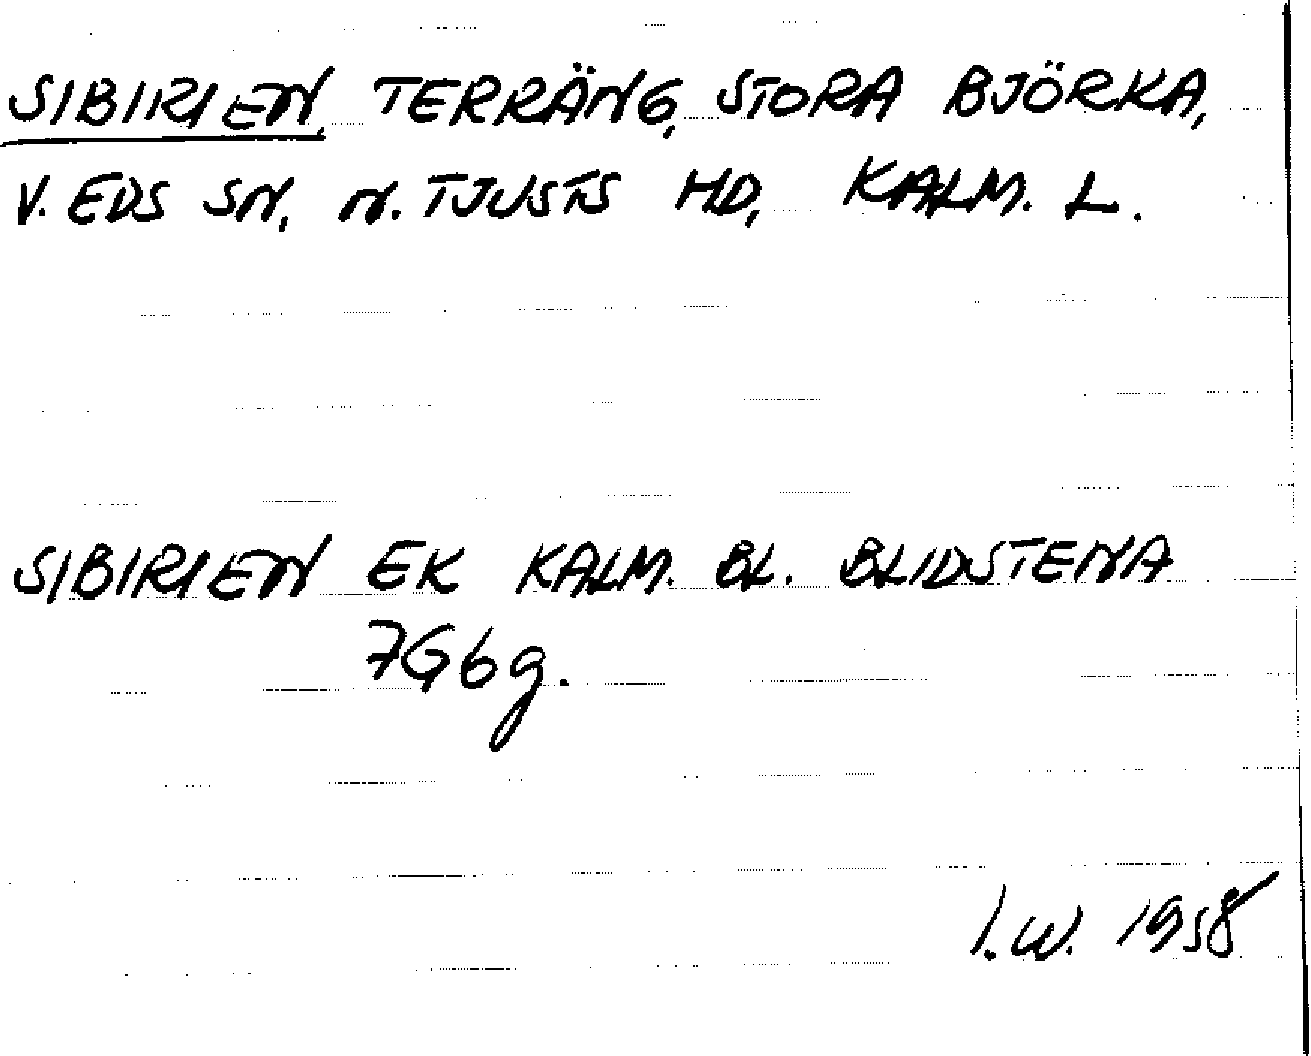 SIBIRIEN, TERRÄNG, STORA BJÖRKA,
V. EDS SN, N. TJUSTS HD, KALM. L.
SIBIRIEN EK KALM. BL. BLIDSTENA
7G6g.
I.W. 1958